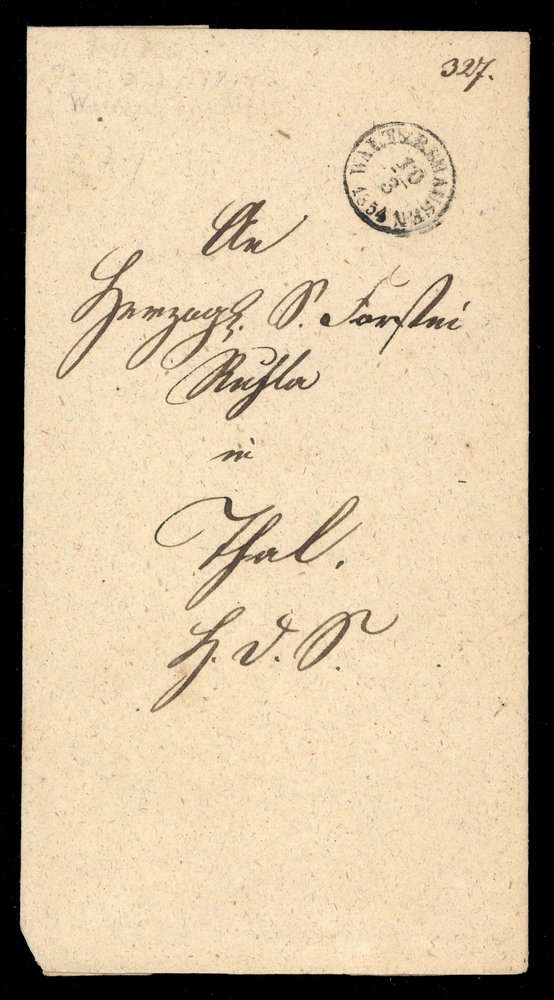 327.
WALTERSHAUSEN
10
5
1854
An
Herzogl. S. Forstei
Ruhla
in
Thal.
H. d. S.